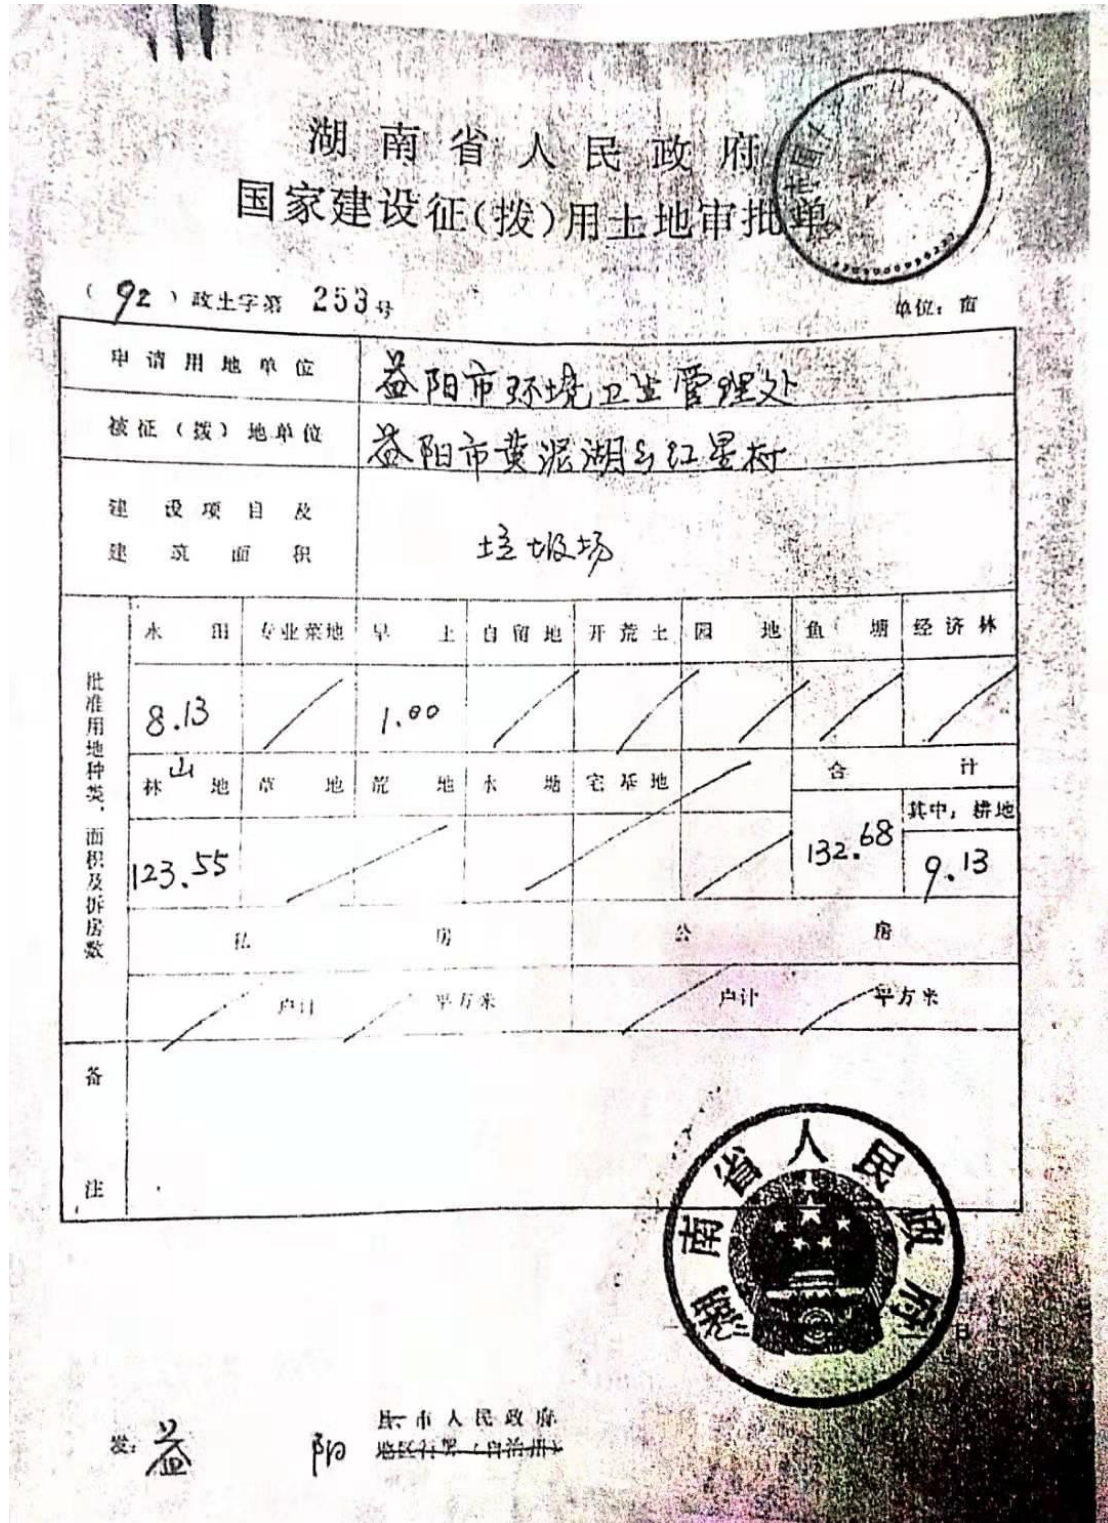 湖南省人民政府
国家建设征(拨)用土地审批单
(92)政土字第 253号
单位：亩
申请用地单位 益阳市环境卫生管理处
被征(拨)地单位 益阳市黄泥湖乡红星村
建设项目及
建筑面积
垃圾场
批准用地种类、面积及拆房数
水田 专业菜地 旱土 自留地 开荒土 园地 鱼塘 经济林
8.13 1.00
林山地 草地 荒地 水塘 宅基地 合计
其中：耕地
123.55 132.68 9.13
私房 公房
户计 平方米 户计 平方米
备注
湖南省人民政府
日
发：益阳 县、市人民政府
地区行署（自治州）